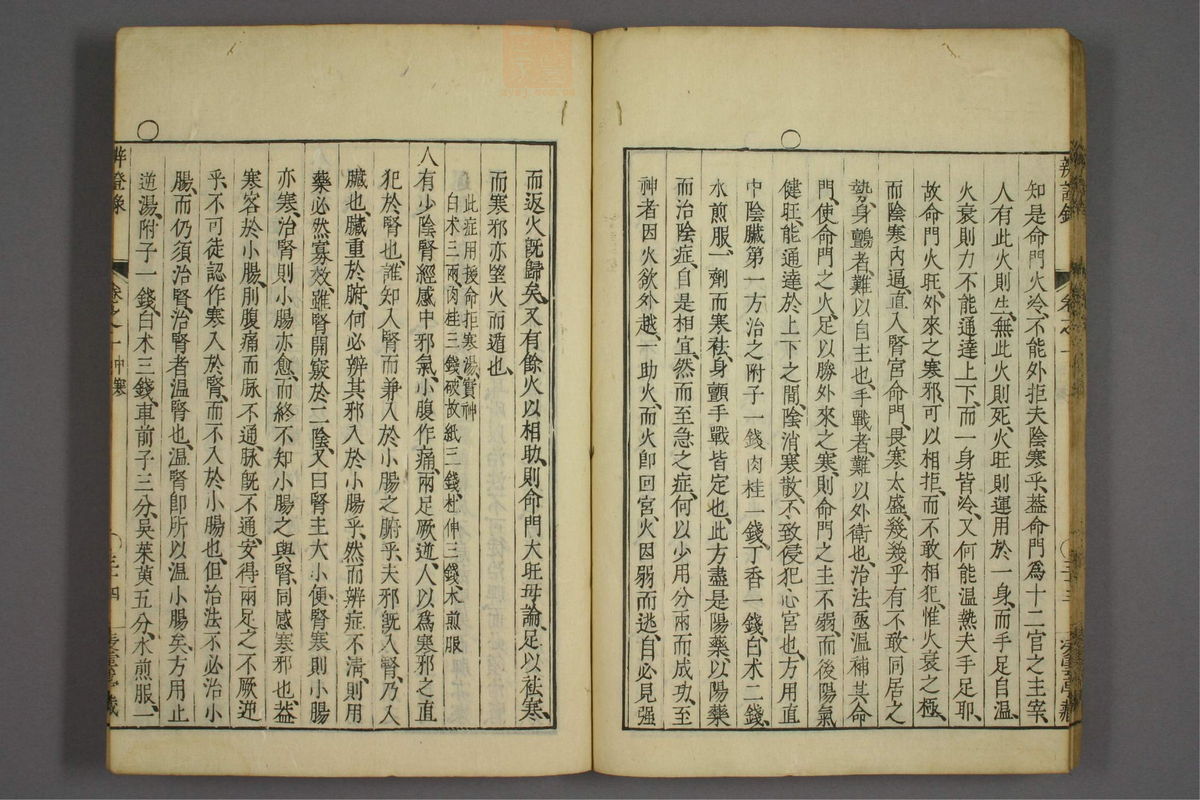 辨證錄
卷之一
三十三
知是命門火冷、不能外拒夫陰寒乎、蓋命門爲十二官之主宰、
人有此火則生、無此火則死、火旺則運用於一身、而手足自溫、
火衰則力不能通達上下、而一身皆冷、又何能溫熱夫手足耶、
故命門火旺、外來之寒邪、可以相拒、而不敢相犯、惟火衰之極、
而陰寒內逼、直入腎宮、命門畏寒太盛、幾幾乎有不敢同居之
勢、身顫者、難以自主也、手戰者、難以外衛也、治法亟溫補其命
門、使命門之火、足以勝外來之寒、則命門之主不弱、而後陽氣
健旺、能通達於上下之間、陰消寒散、不致侵犯心宮也、方用直
中陰臟第一方治之附子一錢肉桂一錢丁香一錢白术二錢、
水煎服、一劑而寒祛、身顫手戰皆定也、此方盡是陽藥、以陽藥
而治陰症、自是相宜、然而至急之症、何以少用分兩而成功、至
神者、因火欲外越、一助火、而火卽回宮、火因弱而逃、自必見强
而返、火旣歸矣、又有餘火以相助、則命門大旺、毋論足以祛寒、
而寒邪亦望火而遁也、
此症用援命拒寒湯、實神
白术三兩、肉桂三錢、破故紙三錢、杜仲三錢、水煎服
人有少陰腎經感中邪氣、小腹作痛、兩足厥逆、人以爲寒邪之直
犯於腎也、誰知入腎而兼入於小腸之腑乎、夫邪旣入腎、乃入
臟也、臟重於腑、何必辨其邪入於小腸乎、然而辨症不淸、則用
藥必然寡效、雖腎開竅於二陰、又曰腎主大小便、腎寒則小腸
亦寒、治腎則小腸亦愈、而終不知小腸之與腎、同感寒邪也、蓋
寒客於小腸、則腹痛而脉不通、脉旣不通、安得兩足之不厥逆
乎、不可徒認作寒入於腎、而不入於小腸也、但治法不必治小
腸、而仍須治腎、治腎者、溫腎也、溫腎卽所以溫小腸矣、方用止
逆湯、附子一錢、白术三錢、車前子三分、吳茱萸五分、水煎服、一
辨證錄
卷之一中寒
三十四